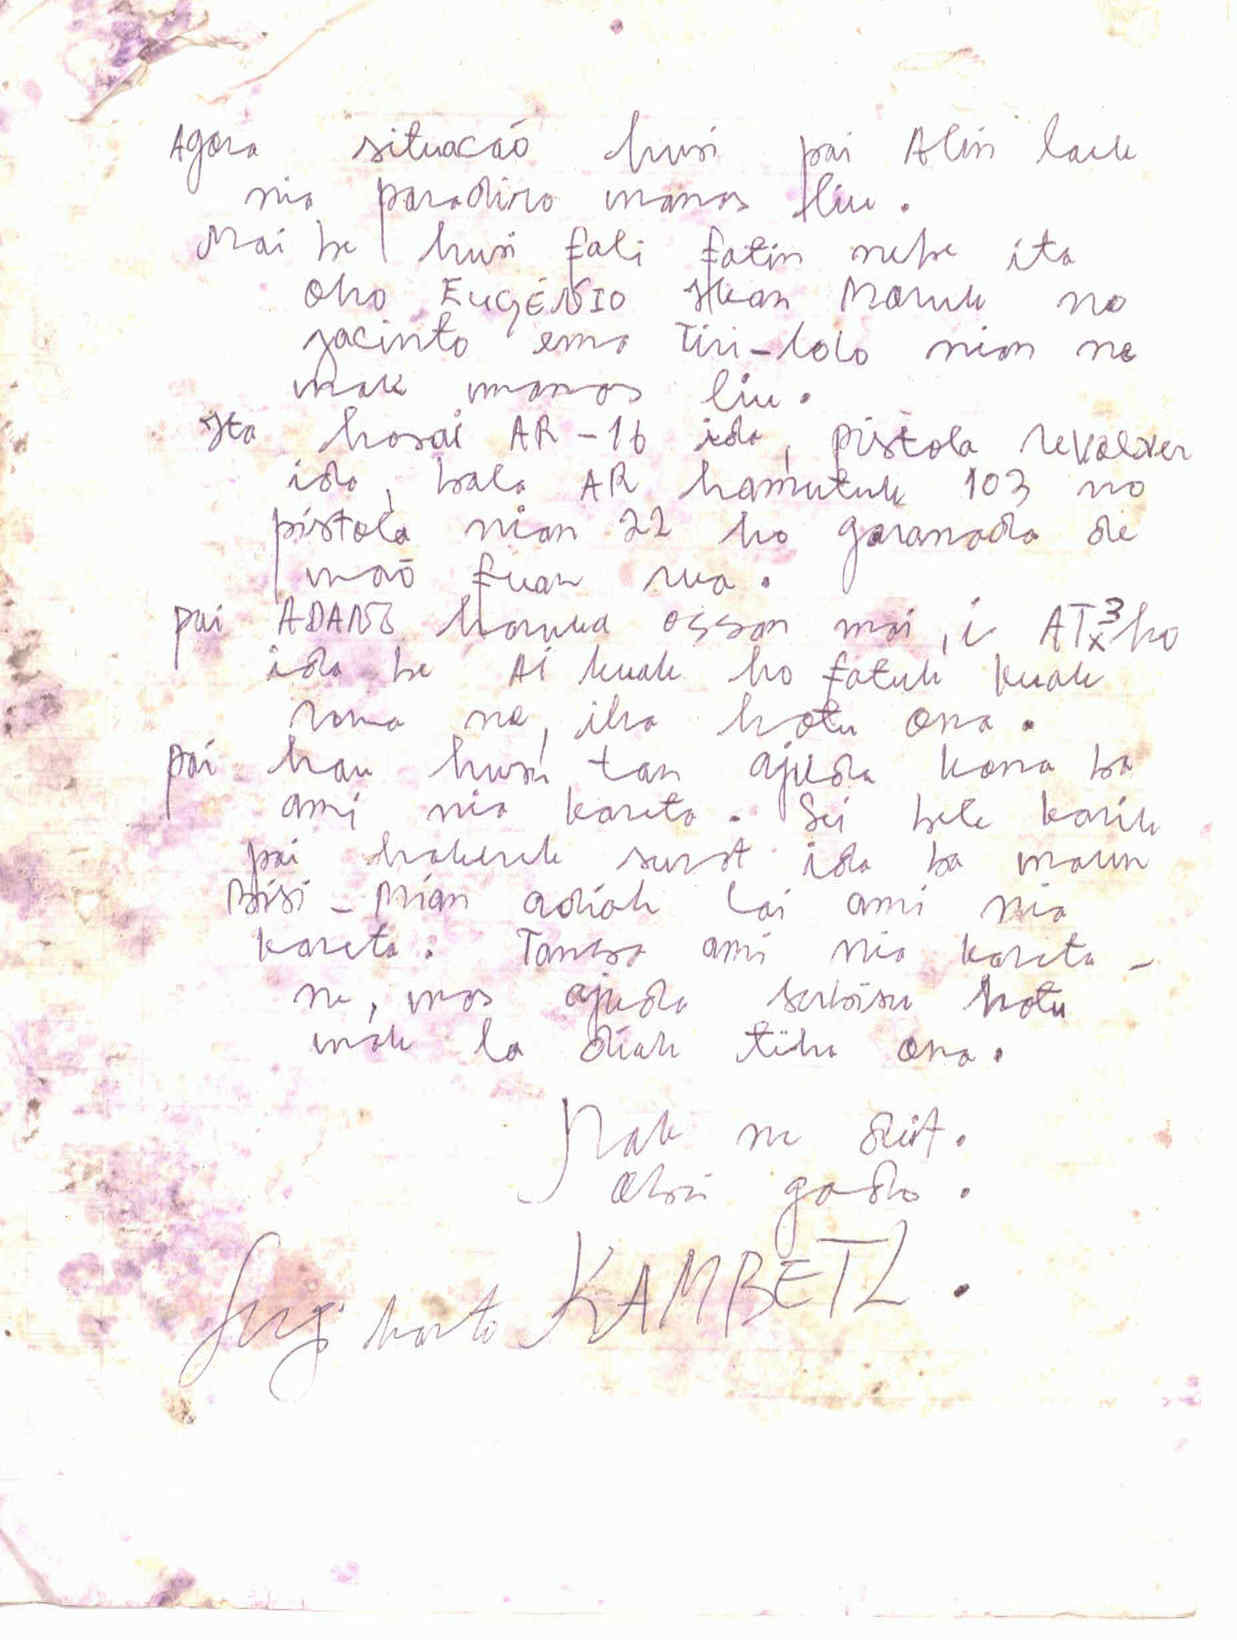 Agora situacão husi pai Alin laek
nia paradiro manas liu.
Mai be husi fali fatin nebe ita
oho EUGÉNIO Mean Maruk no
jacinto ema Tiri-lolo nian ne
mak manas liu.
Ita hasai AR-16 ida, pistola revolver
ida, bala AR hamutuk 103 no
pistola nian 22 ho garanada de
mão fuan rua.
pai ADANS haruka ossan mai, i ATx3 ho
ida be Ai kuak ho fatuk kuak
roma ne, iha hotu ona.
pai hau husu tan ajuda kona ba
ami nia kareta. Sei bele karik
pai hakerek surat ida ba maun
Bisi-Mian adiak lai ami nia
kareta. Tanba ami nia kareta-
ne, mos ajuda serbisu hotu
mak la diak tiha ona.
Mak ne deit.
Obri gado.
KAMBETL.